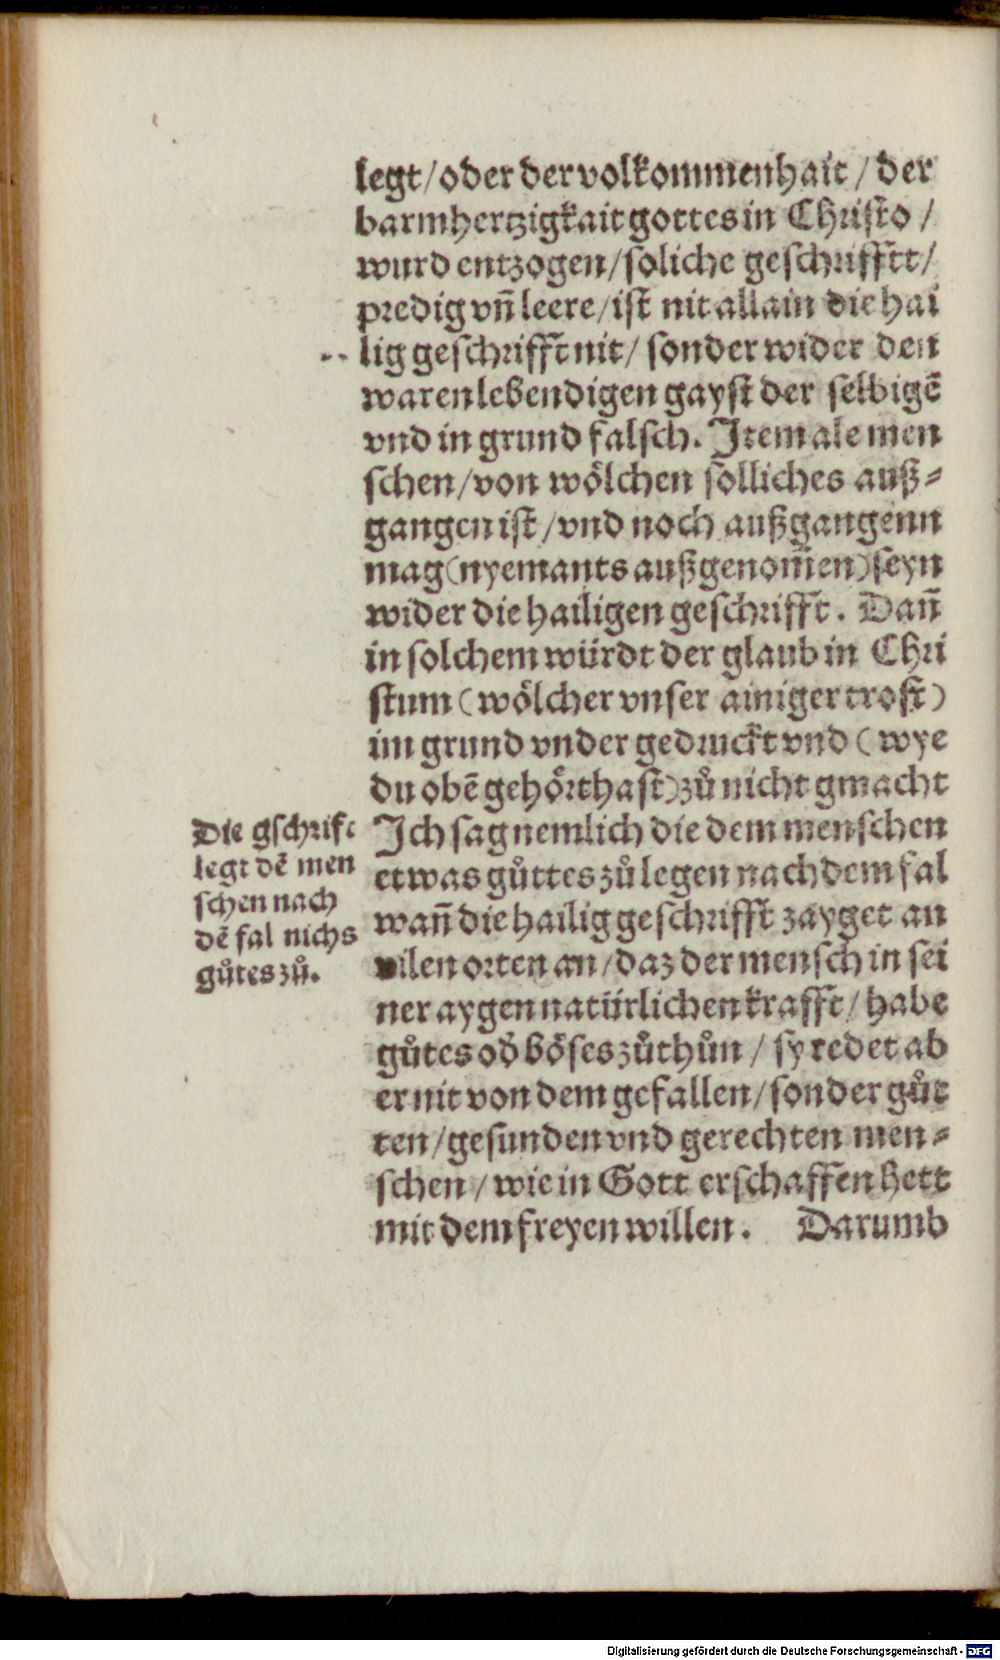 legt/oder der volkommenhait/der
barmhertzigkait gottes in Christo/
wurd entzogen/soliche geschrifftt/
predig vñ leere/ist nit allain die hai
lig geschrifft nit/ sonder wider den
waren lebendigen gayst der selbigẽ
vnd in grund falsch. Item ale men
schen/von wölchen solliches auß-
gangen ist/vnd noch außgangenn
mag(nyemants außgenom̃en)seyn
wider die hailigen geschrifft. Dañ
in solchem würdt der glaub in Chri
stum (wölcher vnser ainiger trost)
im grund vnder gedruckt vnd (wye
du obẽ gehört hast)zů nicht gmacht
Die gschrift
legt dẽ men
schen nach
dẽ fal nichs
gůtes zů.
Ich sag nemlich die dem menschen
etwas gůttes zů legen nach dem fal
wañ die hailig geschrifft zayget an
vilen orten an/daz der mensch in sei
ner aygen natürlichen krafft/habe
gůtes oď böses zůthůn/ sy redet ab
er nit von dem gefallen/sonder gůt
ten/gesunden vnd gerechten men-
schen/wie in Gott erschaffen hett
mit dem freyen willen. Darumb
Digitalisierung gefördert durch die Deutsche Forschungsgemeinschaft - DFG